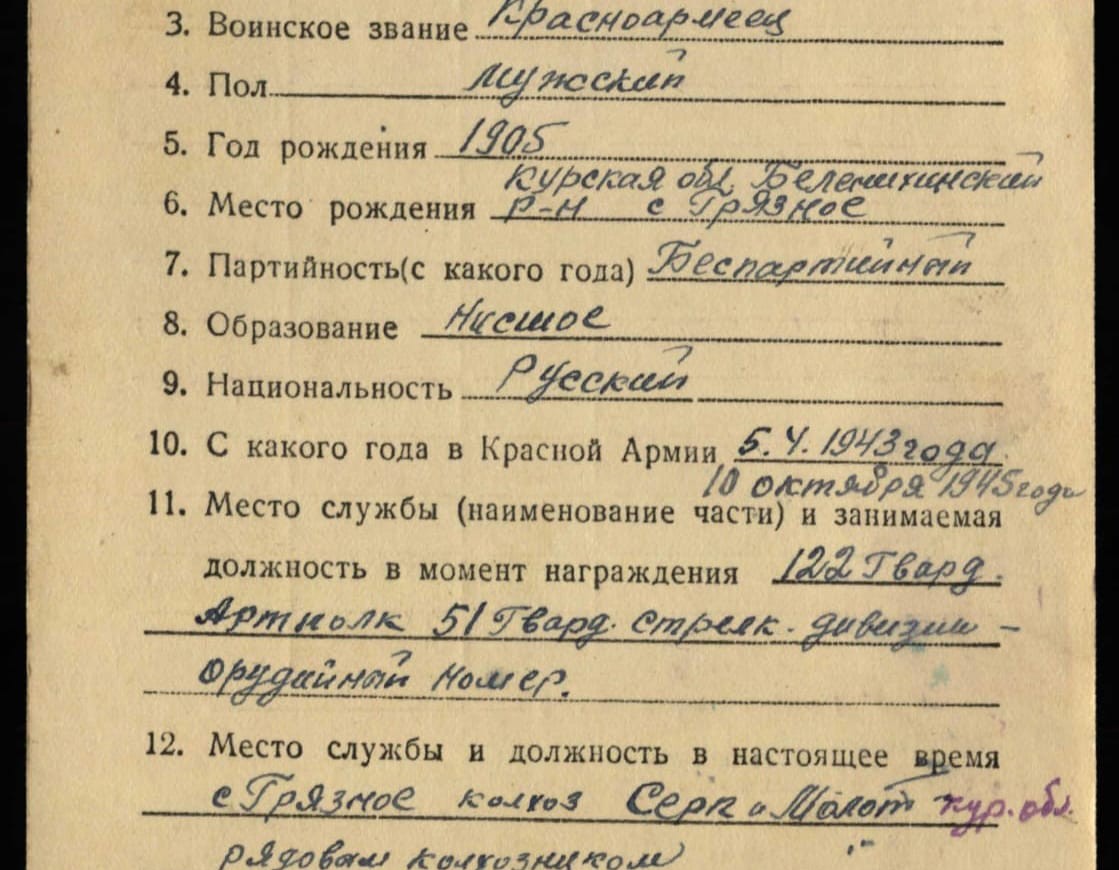 3. Воинское звание Красноармеец
4. Пол Мужский
5. Год рождения 1905
Курская обл. Беленихинский
6. Место рождения р-н с Грязное
7. Партийность(с какого года) Беспартийный
8. Образование Нисшое
9. Национальность Русский
10. С какого года в Красной Армии 5.4.1943 года.
10 октября 1945 года
11. Место службы (наименование части) и занимаемая
должность в момент награждения 122 Гвард.
Артполк 51 Гвард. стрелк. дивизии –
орудийный номер.
12. Место службы и должность в настоящее время
с Грязное колхоз Серп и Молот кур. обл.
рядовым колхозником